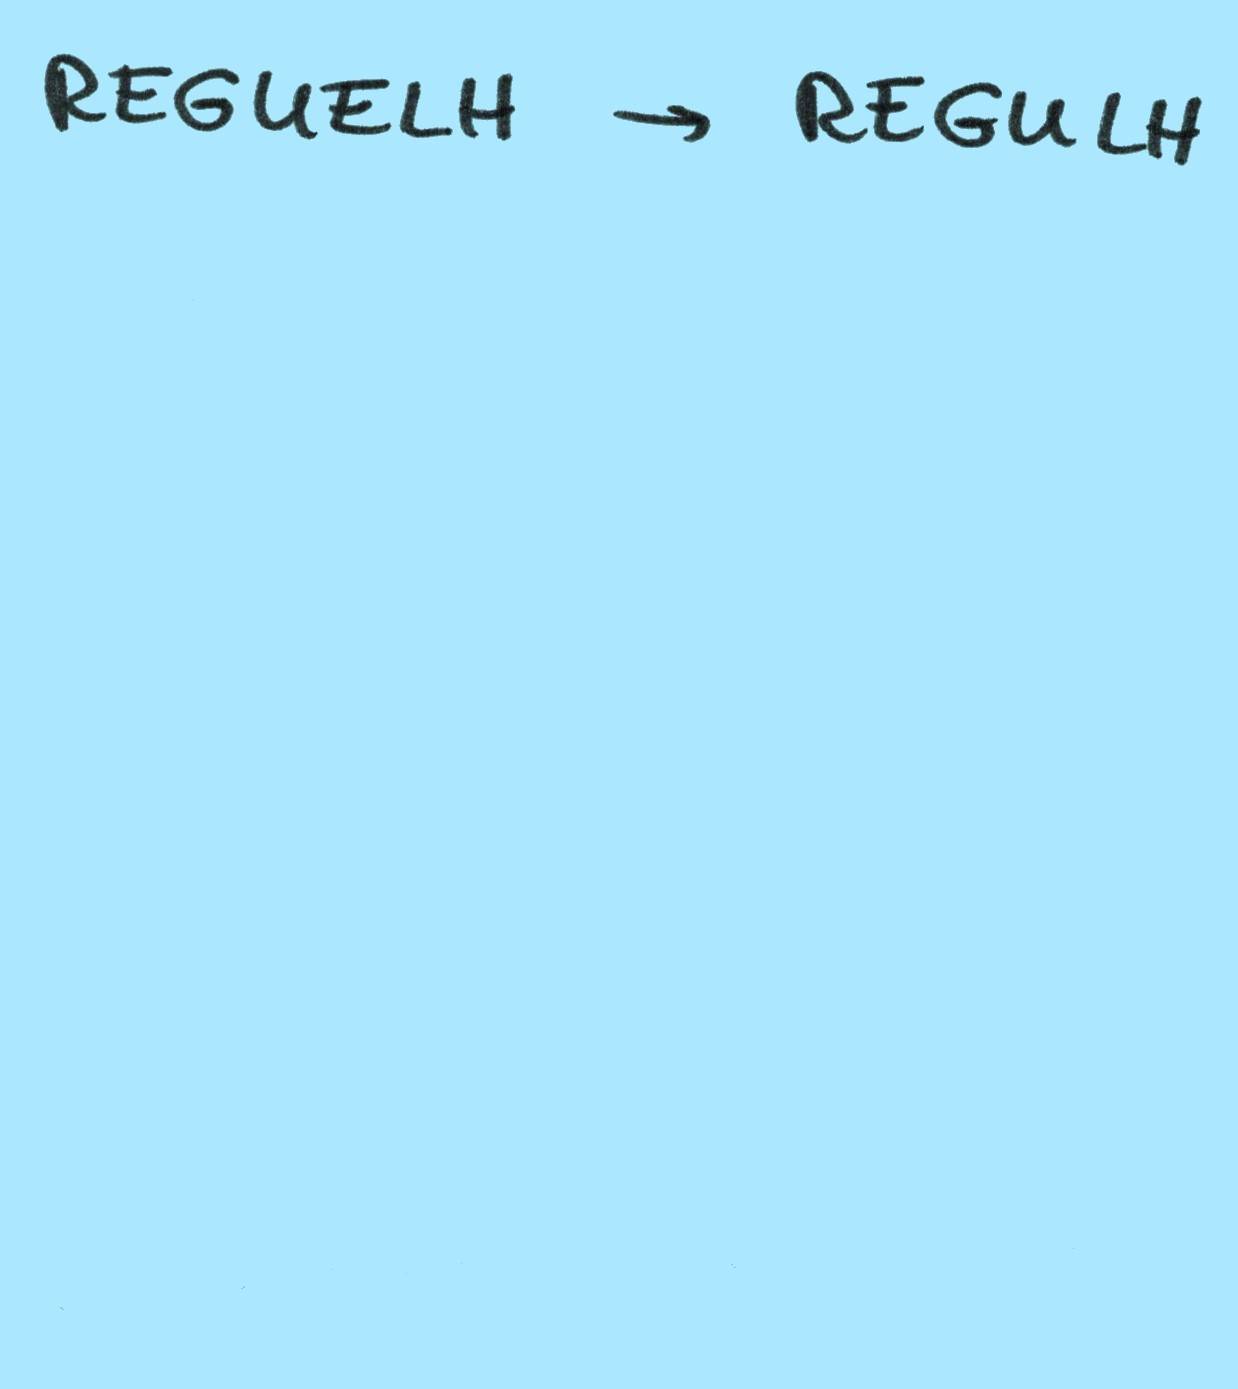 REGUELH → REGULH